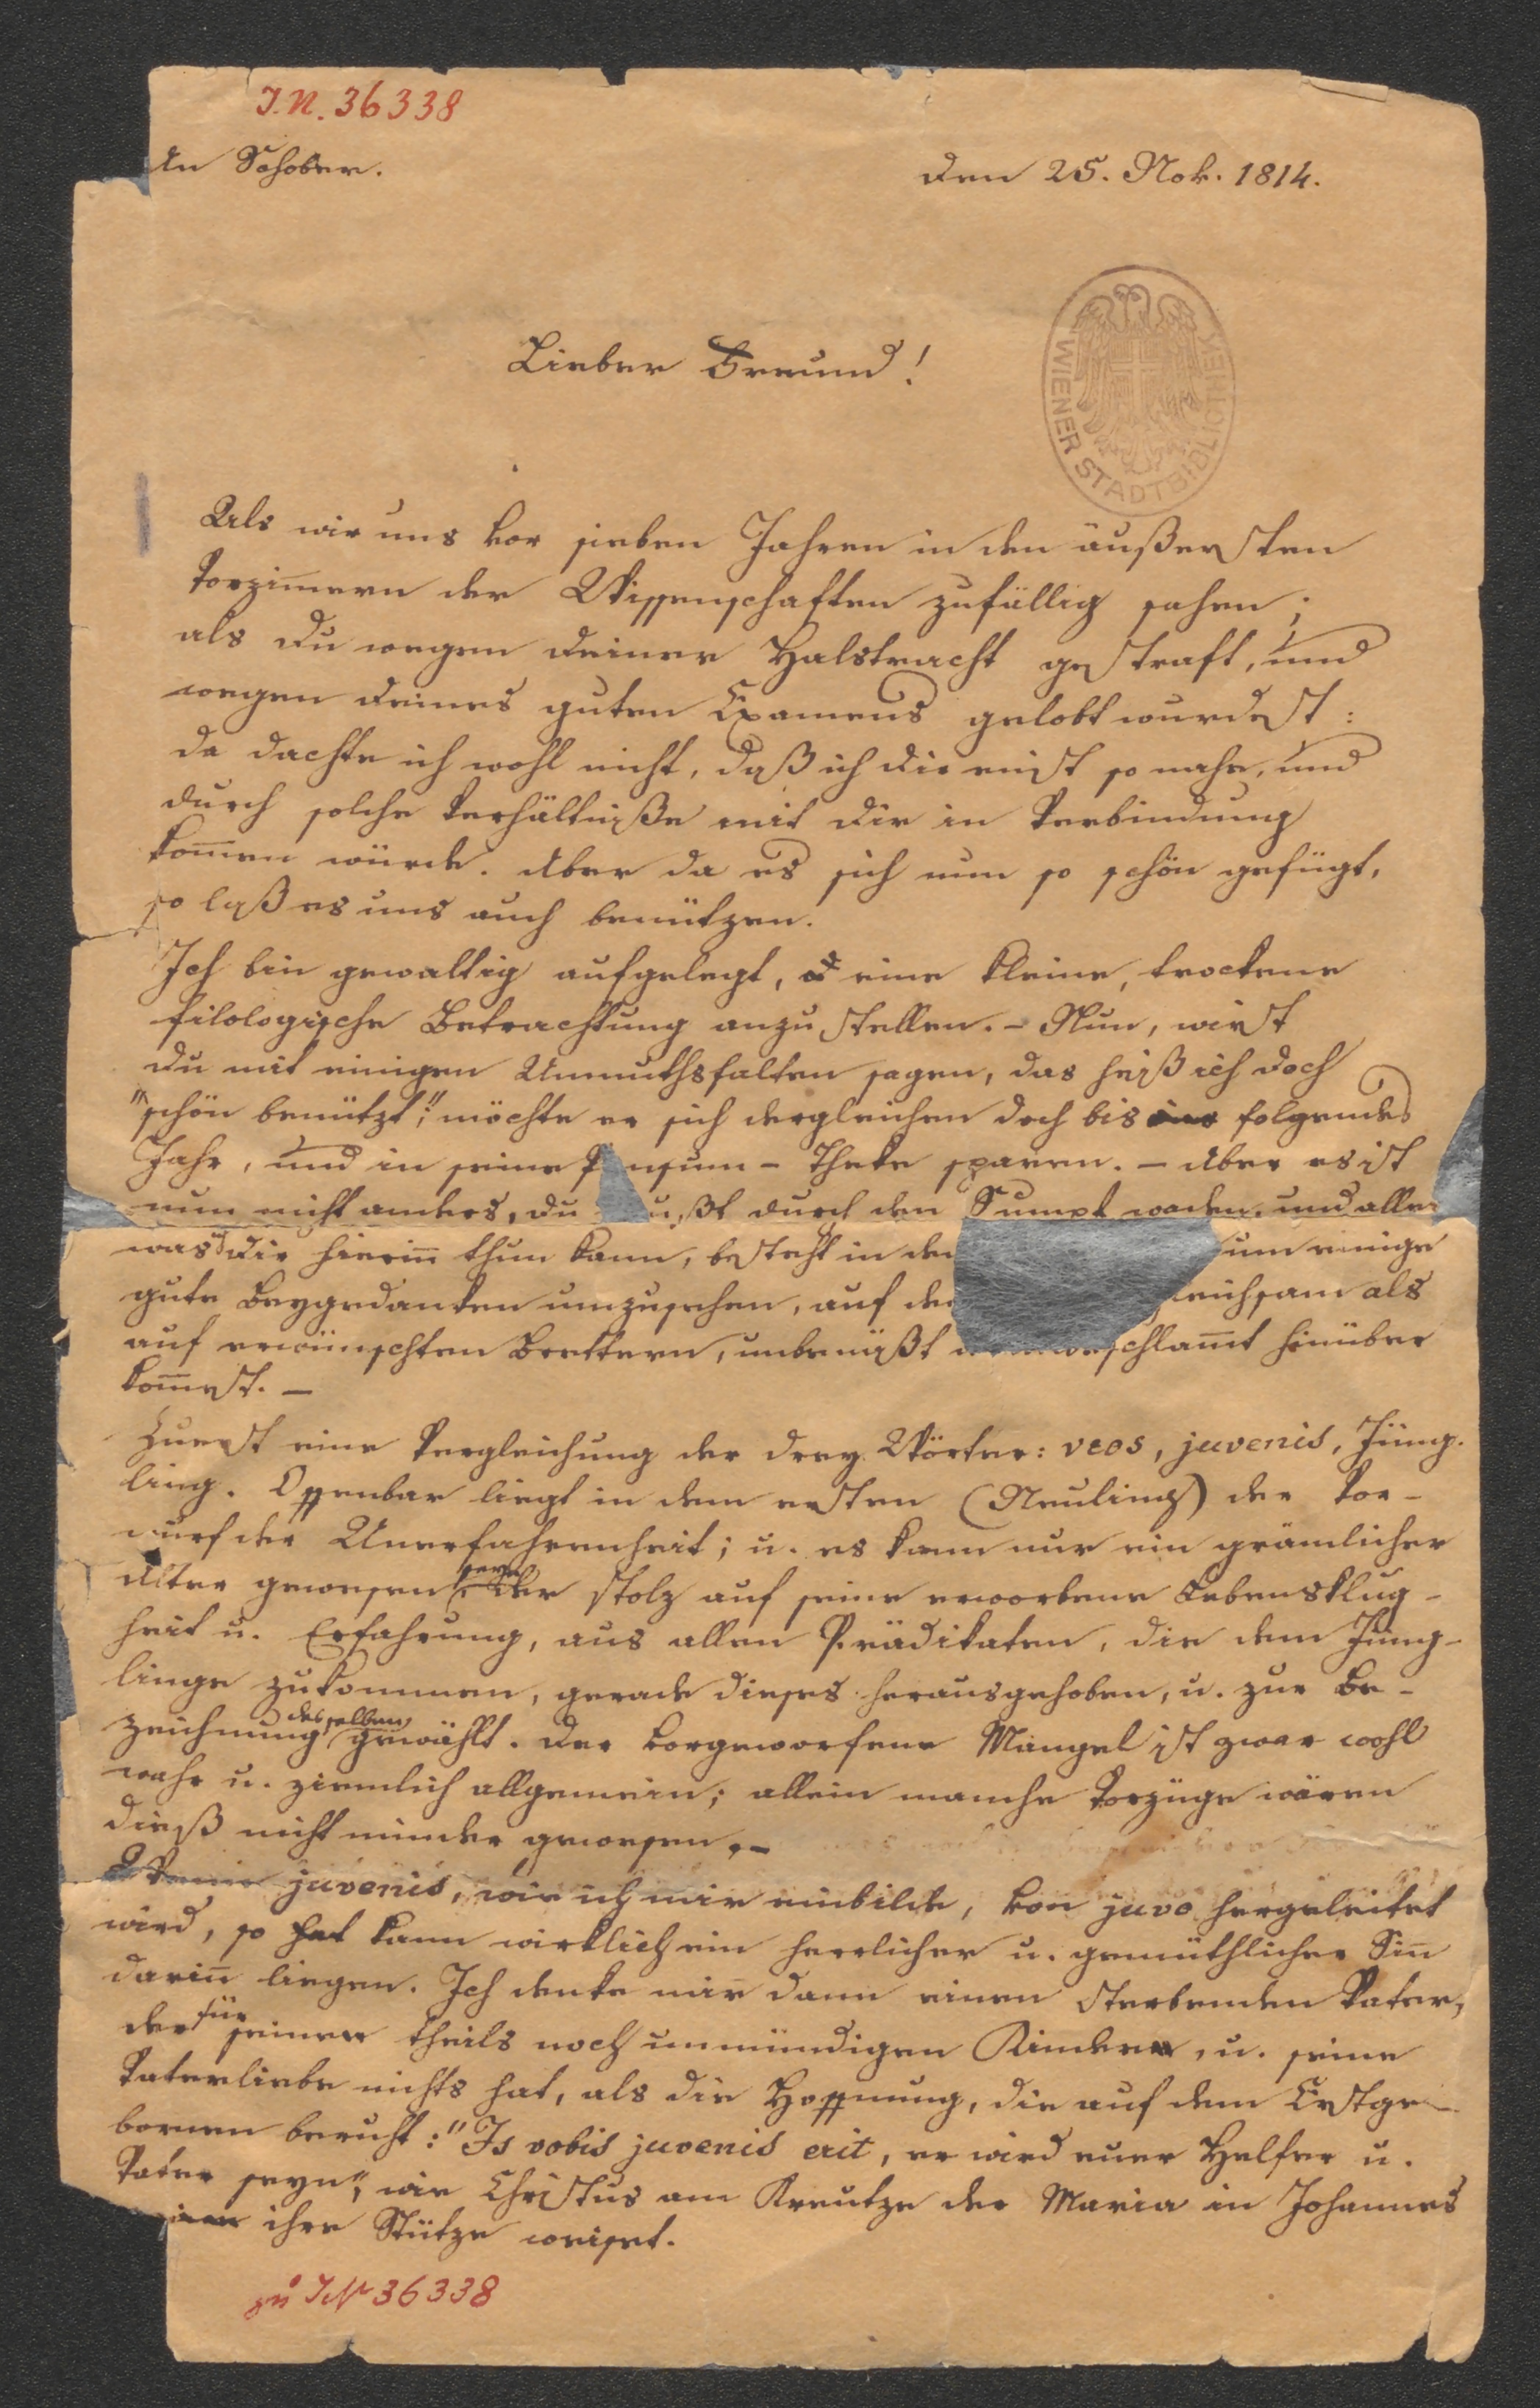 I.N. 36338
An Schober.
Den 25. Nov. 1814.
WIENER STADTBIBLIOTHEK
Lieber Freund!
Als wir uns vor sieben Jahren in den äußersten
Vorzim̅ern der Wissenschaften zufällig sahen;
als Du wegen Deiner Halstracht gestraft, und
wegen Deines guten Examens gelobt wurdest:
da dachte ich wohl nicht, daß ich Dir einst so nahe, und
durch solche Verhältniße mit Dir in Verbindung
kom̅en würde. Aber da es sich nun so schön gefügt,
so laß es uns auch benützen.
Ich bin gewaltig aufgelegt, eine kleine, trockene
filologische Betrachtung anzustellen. – Nun, wirst
Du mit einigen Unmuthsfalten sagen, das heiß ich doch
"schön benützt"; möchte er sich dergleichen doch bis ins folgende
Jahr, und in seine P nsum – Theke sparen. – Aber es ist
nun nicht anders, Du ußt durch den Sumpf waden, und alles
was ich Dir hierin̅ thun kann, besteht in de um einige
gute Beygedanken umzusehen, auf de leichsam als
auf erwünschten Brettern, unbenäßt schlam̅t hinüber
kom̅st. –
Zuerst eine Vergleichung der drey Wörter: νεος, juvenis, Jüng-
ling. Offenbar liegt in dem ersten (Neuling) der Vor-
wurf der Unerfahrenheit; u. es kann nur ein grämlicher
Alter gewesen seyn, der stolz auf seine erworbene Lebensklug-
heit u. Erfahrung, aus allen Prädikaten, die dem Jüng-
linge zukommen, gerade dieses herausgehoben, u. zur Be-
zeichnung desselben gewählt. Der vorgeworfene Mangel ist zwar wohl
wahr u. ziemlich allgemein; allein manche Vorzüge wären
dieß nicht minder gewesen. –
Wenn juvenis, wie ich mir einbilde, von juvo hergeleitet
wird, so hat kann wirklich ein herrlicher u. gemüthlicher Sin̅
darin̅ liegen. Ich denke mir dann einen sterbenden Vater,
der für seine theils noch unmündigen Kinder, u. seine
Vaterliebe nichts hat, als die Hoffnung, die auf dem Erstge-
bornen beruht: "Is vobis juvenis erit, er wird euer Helfer u.
Vater seyn", wie Christus am Kreutze der Maria in Johannes
ihre Stütze weiset.
zu I.N. 36338